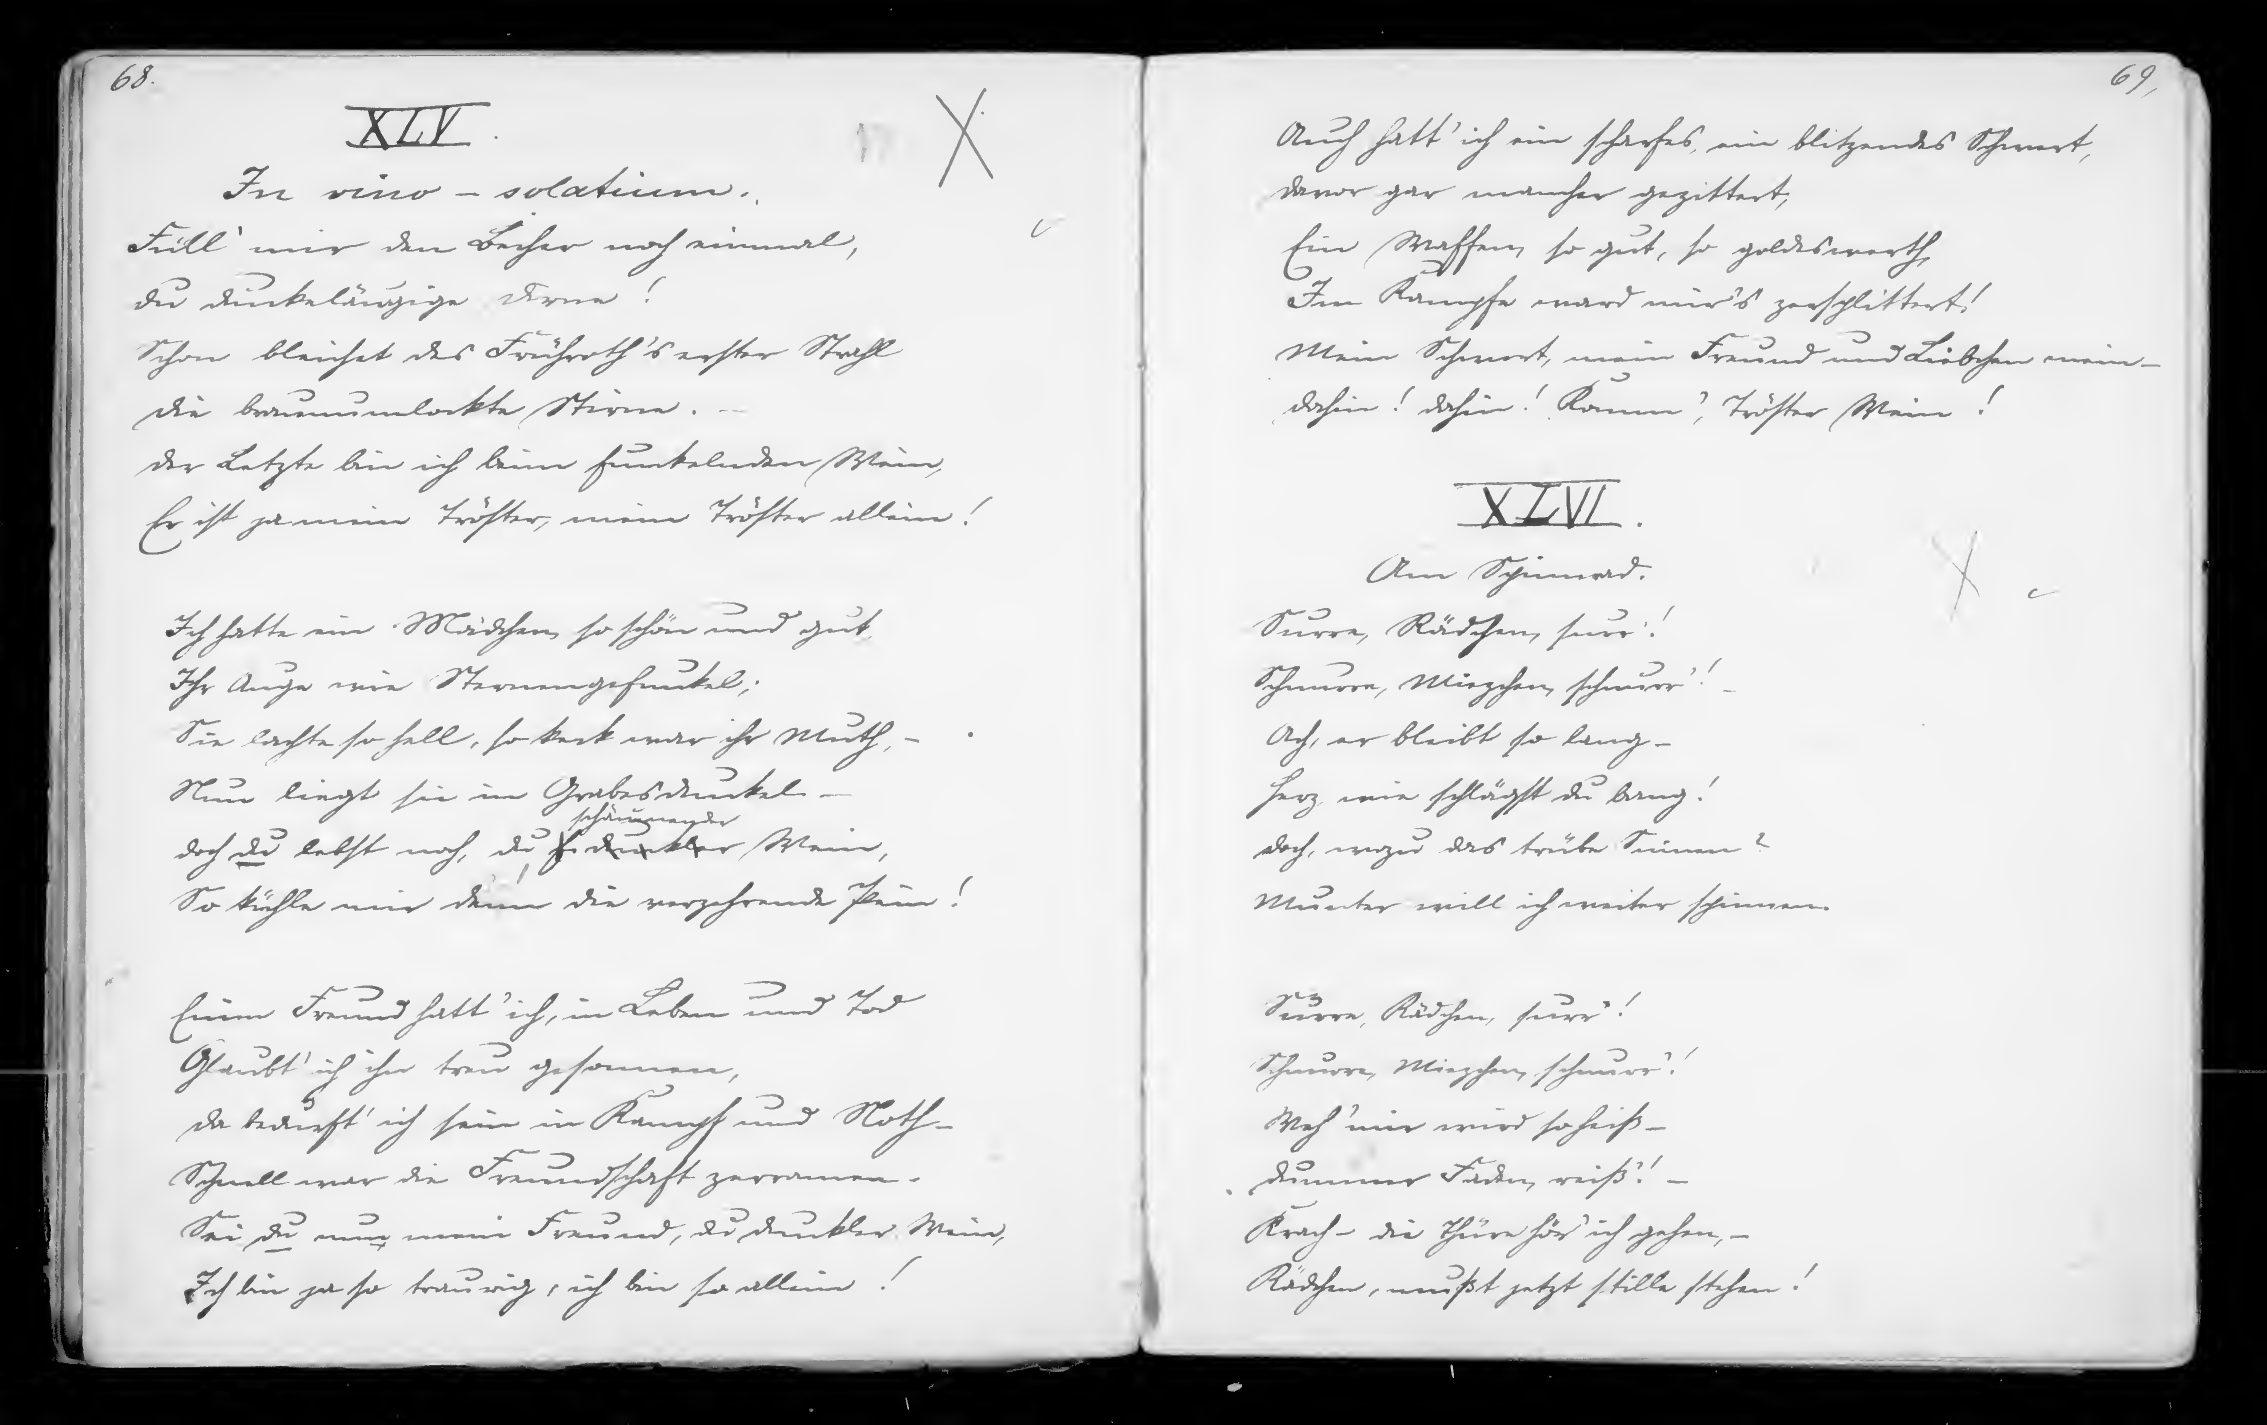 68.
XLV.
In vino – solatium.
Füll' mir den Becher noch einmal,
du dunkeläugige Dirne!
Schon bleichet des Frühroth's erster Strahl
die braunumlockte Stirne. –
der Letzte bin ich beim funkelnden Wein,
Er ist ja mein Tröster, mein Tröster allein!
Ich hatte ein Mädchen, so schön und gut,
Ihr Auge wie Sternengefunkel;
Sie lachte so hell, so keck war ihr Muth, –
Nun liegt sie im Grabesdunkel –
schäumender
doch du lebst noch, du dunkler Wein,
So kühle mir denn die verzehrende Pein!
Einen Freund hatt' ich, in Leben und Tod
Glaubt' ich ihn treu gesonnen,
da bedurft' ich sein in Kampf und Noth –
Schnell war die Freundschaft zerronnen.
Sei du nun mein Freund, du dunkler Wein,
Ich bin ja so traurig, ich bin so allein!
69,
Auch hatt' ich ein scharfes, ein blitzendes Schwert,
davor gar mancher gezittert,
Ein Waffen, so gut, so goldeswerth,
Im Kampfe ward mir's zersplittert!
Mein Schwert, mein Freund und Liebchen mein –
dahin! dahin! Komm', Tröster Wein!
XLVI.
Am Spinnrad.
Surre, Rädchen, surr'!
Schnurre, Miezchen, schnurr'! –
Ach, er bleibt so lang –
Herz, wie schlägst du bang!
doch, wozu das trübe Sinnen?
Munter will ich weiter spinnen.
Surre, Rädchen, surr'!
Schnurre, Miezchen, schnurr'!
Weh' mir wird so heiß –
dummer Faden, reiß'! –
Krach – die Thüre hör' ich gehen, –
Rädchen, mußt jetzt stille stehen!